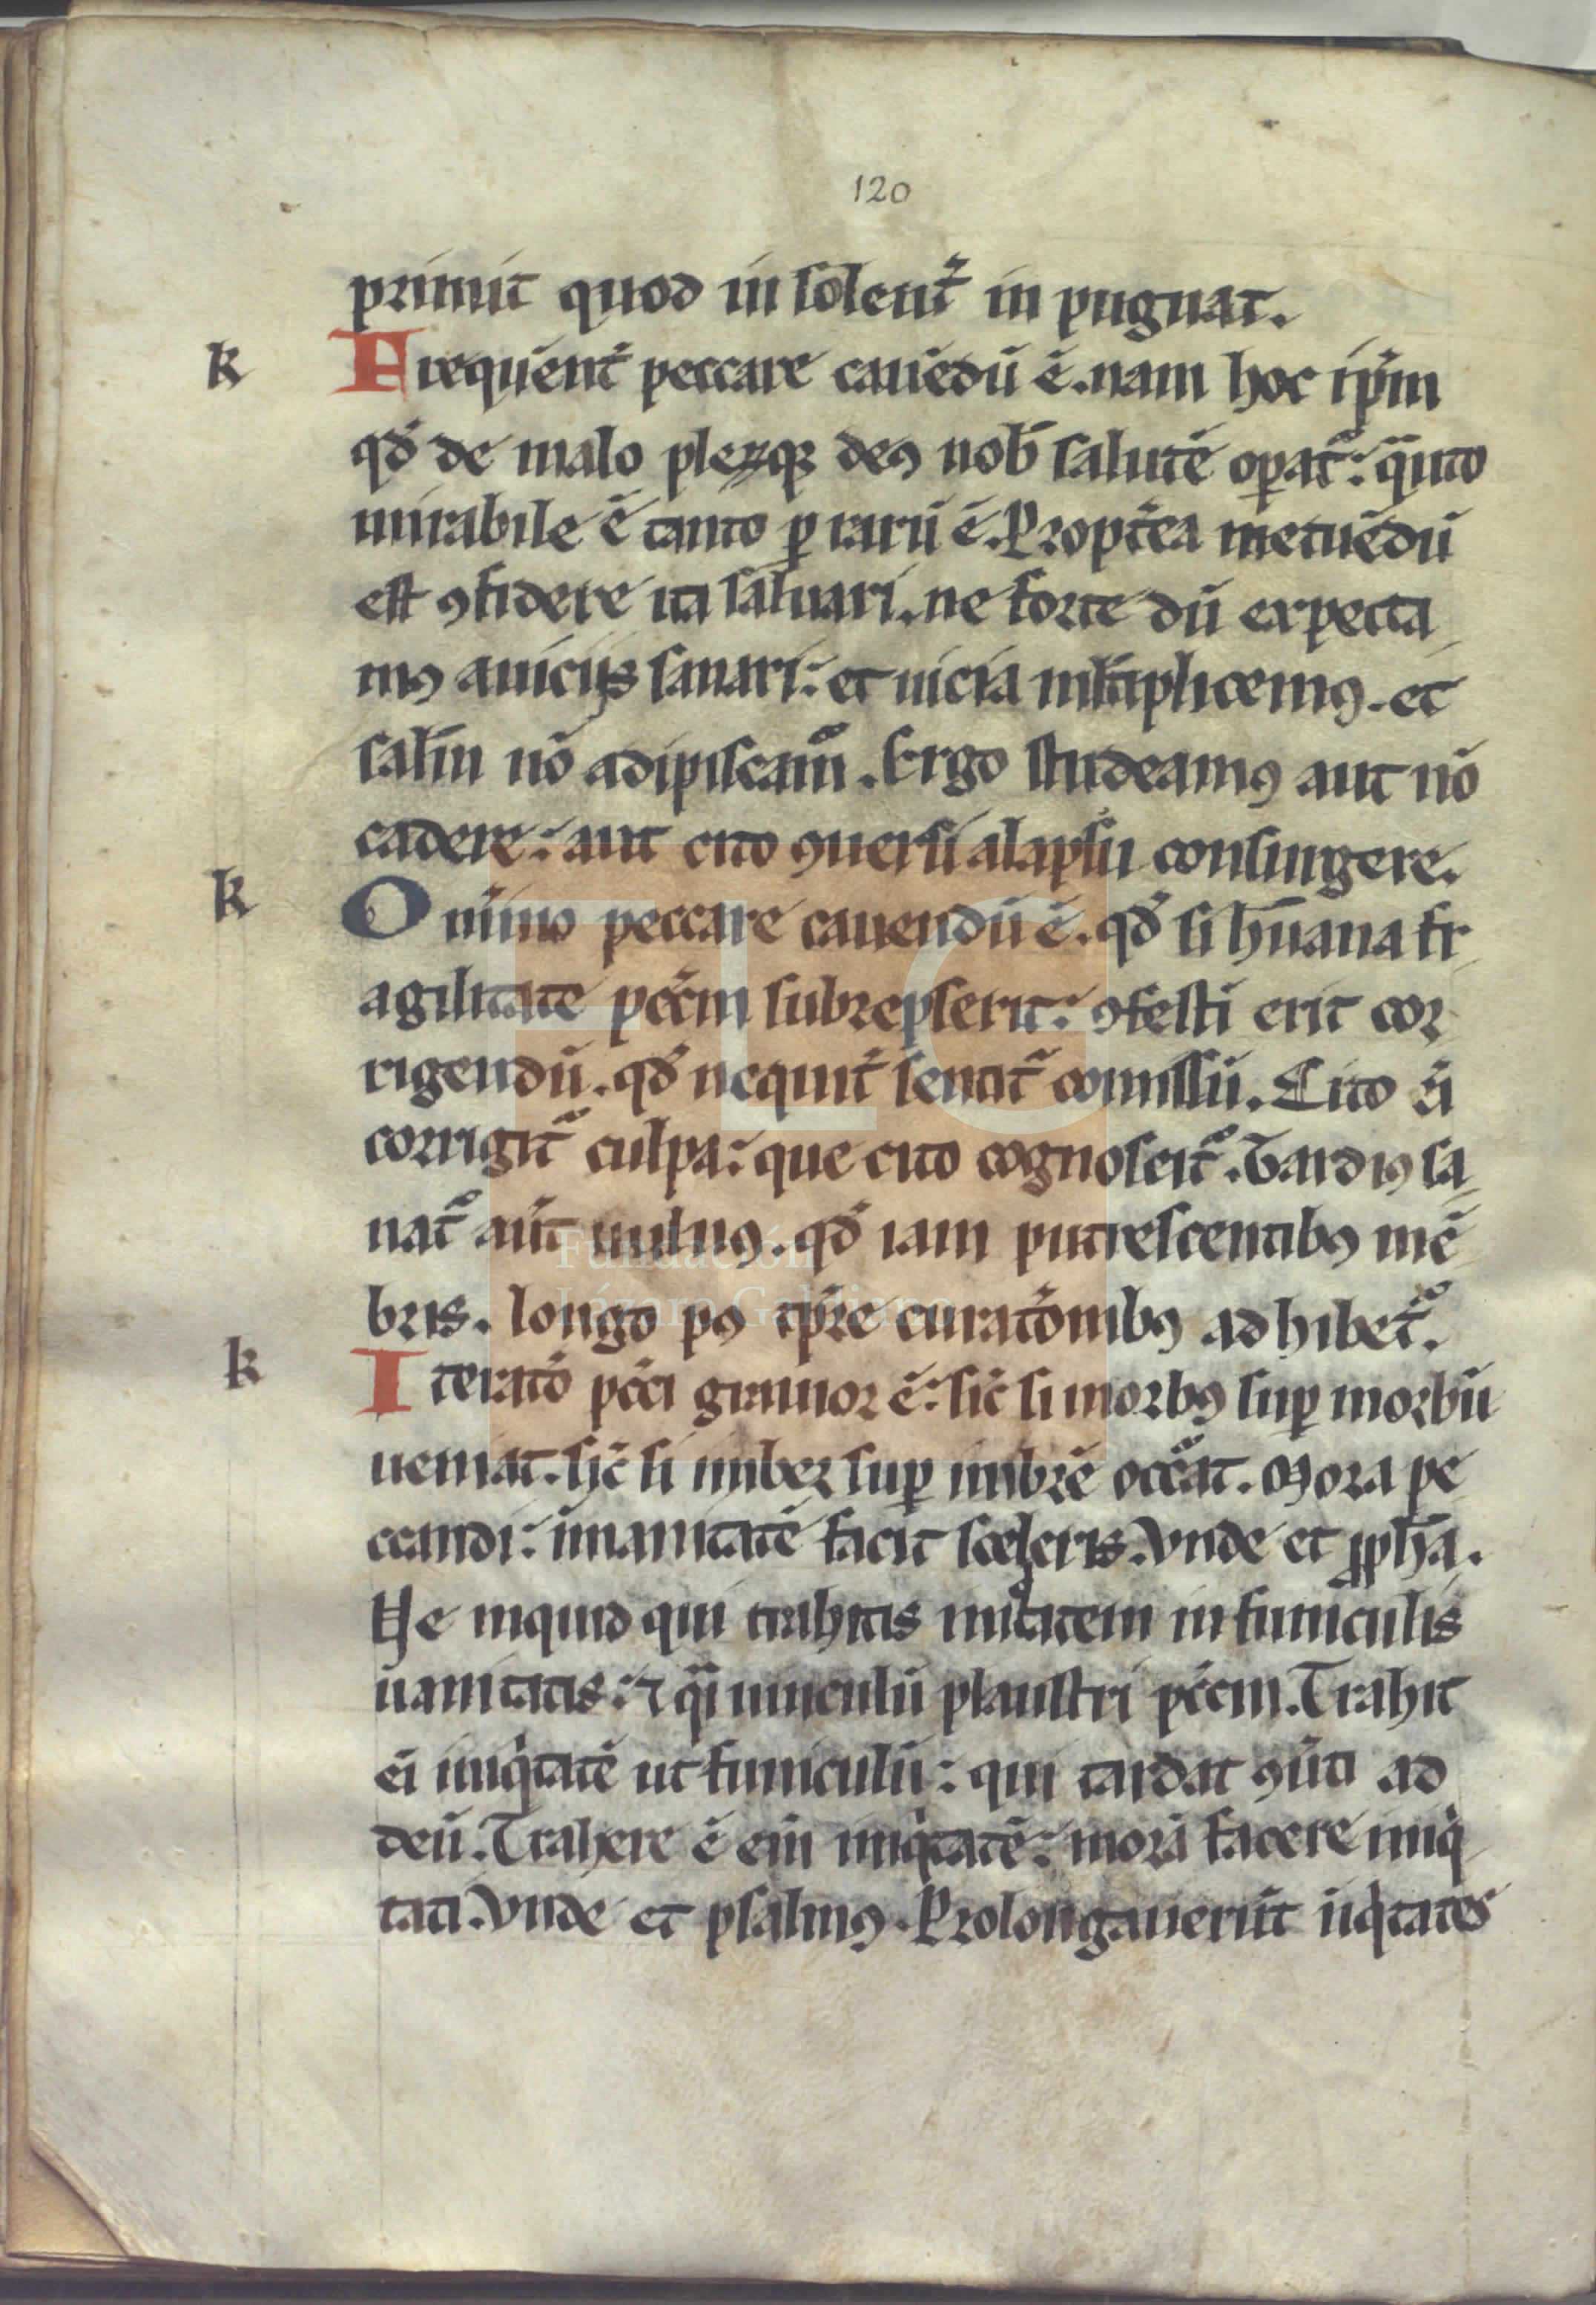 120
primit quod in solent᷑ in pugnat.
k Frequēnt᷑ peccare cauēdū ē. nam hoc ip̄m
qd̄ de malo plerūqꝫ deꝰ nob̄ salutē oꝑat᷑: q̄nto
mirabile ē tanto ꝑ rarū ē. Propt̄ea metuēdū
est ꝯfidere ita saluari. ne forte dū expecta
mꝰ auiciis sanari: et uicia ml̄tiplicemꝰ. et
sal̄m nō adipiscam᷑. Ergo studeamꝰ aut nō
cadere: aut cito ꝯuersi alapsu consurgere.
k Om̄ino peccare cauendū ē. qd̄ si hūana fr
agilitate pc̄cm subrepserit: ꝯfesti erit cor
rigendū. qd̄ nequit᷑ sentit᷑ comissū. Cito n̄
corrigit᷑ culpa: que cito cognoscit᷑. Tardiꝰ sa
nat᷑ aūt uulnꝰ. qd̄ iam putrescentibꝰ mē
bris. longo pꝰ tp̄re curat̄onibꝰ ad hibet᷑.
k Iterat̄o pc̄ci grauior ē: sic̄ si morbꝰ suꝑ morbū
ueniat. sic̄ si imber suꝑ imbrē occ̄at. Mora pe
ccandi: īmanitatē facit sceleris. Vnde et ꝓph̄a.
Ue inquid qui trahitis iniq̄tatem in funiculis
uanitatis: ⁊ q̄i uinculū plaustri pc̄cm. Trahit
ēi iniq̇tatē ut funiculū: qui tardat ꝯūti ad
deū. Trahere ē eīn iniq̇tatē: morā facere iniq̇
tati. Vnde et psalmꝰ. Prolongauerūt īiq̇tates
Fundación
Lázaro Galdiano
FLG